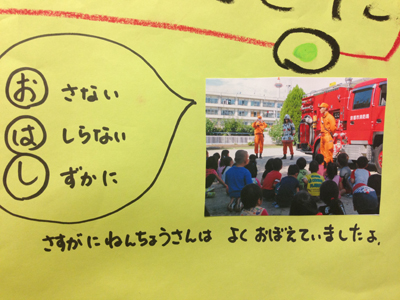 お さない
は しらない
し ずかに
さすがにねんちょうさんは よくおぼえていましたよ。